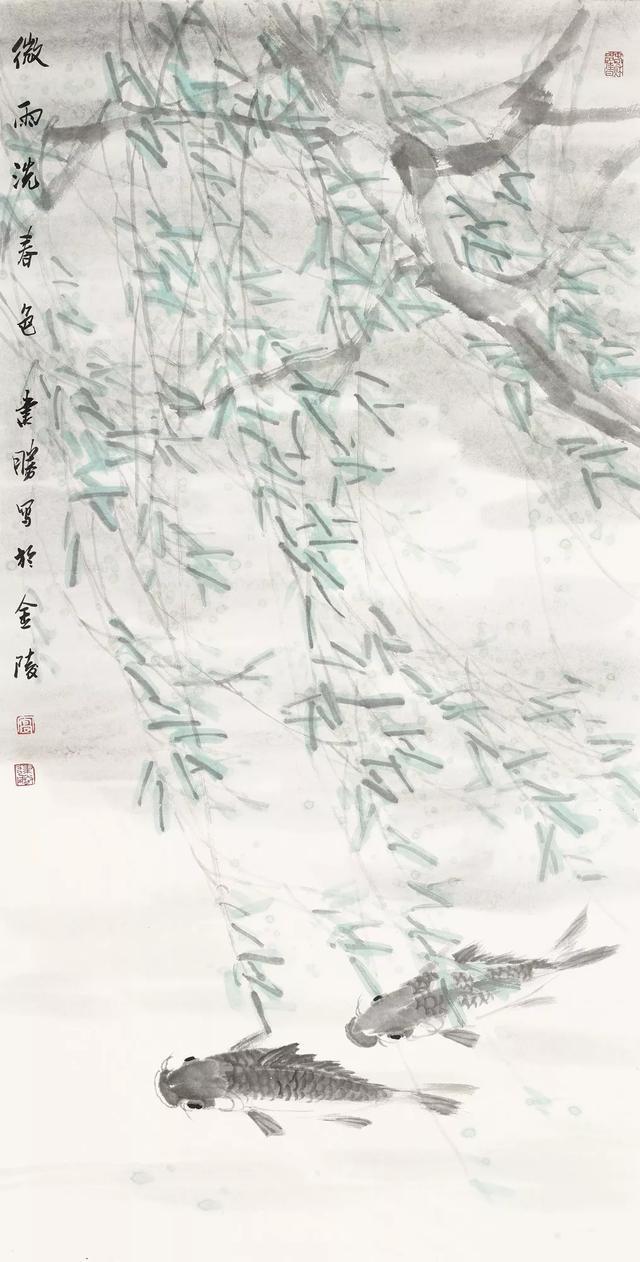 微雨洗春色建勝写於金陵